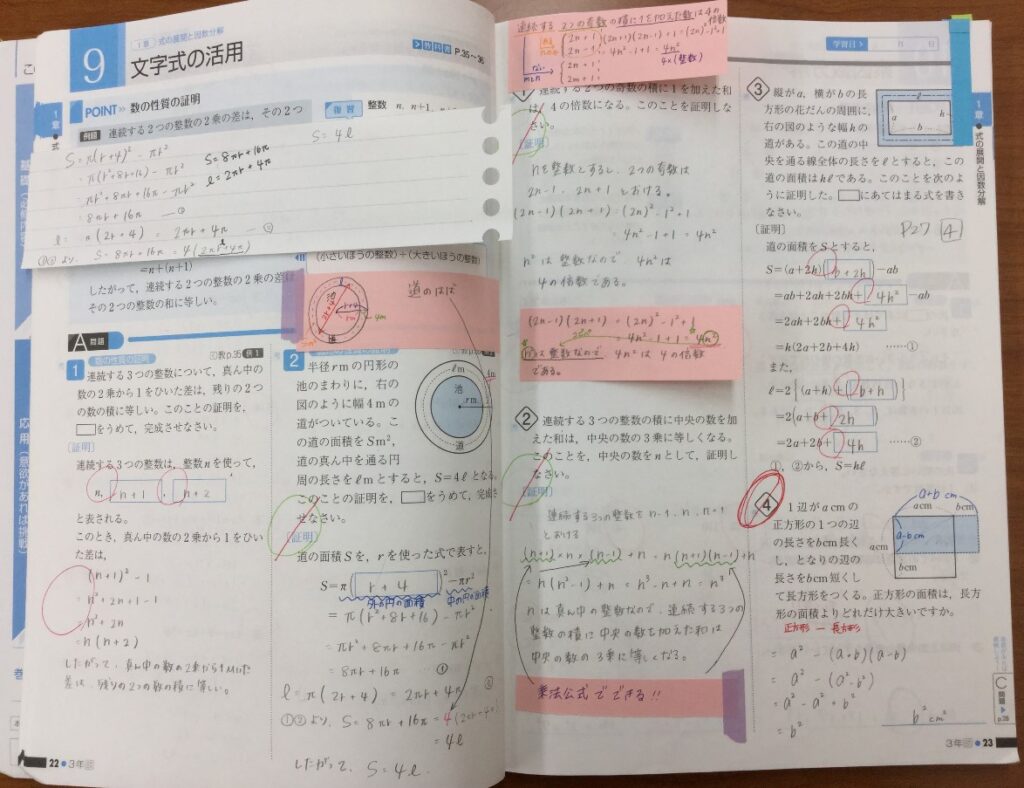 9
1章 式の展開と因数分解
文字式の活用
>教科書 P.35~36
POINT» 数の性質の証明
復習
整数
例題 連続する2つの整数の2乗の差は,その2つ
S=4ℓ
S=π(r+4)²-πr²
=π(r²+8r+16)-πr²
=πr²+8πr+16π-πr²
=8πr+16π ―①
S=8πr+16π
ℓ=2πr+4π
ℓ=π(2r+4)=2πr+4π ―②
①②より, S=8πr+16π=4(2πr+4π)
ℓ
=n+(n+1)
したがって,連続する2つの整数の2乗の差は
その2つの整数の和に等しい。
(小さいほうの整数)+(大きいほうの整数)
道のはば
池
道
A 問題
数の性質の証明
教p.35 例1
1 連続する3つの整数について,真ん中の
数の2乗から1をひいた差は,残りの2つ
の数の積に等しい。このことの証明を,
□をうめて,完成させなさい。
〔証明〕
連続する3つの整数は,整数nを使って,
n, n+1, n+2
と表される。
このとき,真ん中の数の2乗から1をひい
た差は,
(n+1)²-1
=n²+2n+1-1
=n²+2n
=n(n+2)
したがって,真ん中の数の2乗から1をひいた
差は,残りの2つの数の積に等しい。
2 半径rmの円形の
池のまわりに,右の
図のように幅4mの
道がついている。こ
の道の面積をSm²,
道の真ん中を通る円
周の長さをℓmとすると,S=4ℓとなる。
このことの証明を,□をうめて,完成さ
せなさい。
ℓm
池
rm
道
4m
〔証明〕
道の面積Sを,rを使った式で表すと,
S=π(r+4)²-πr²
外の円の面積 中の円の面積
=π(r²+8r+16)-πr²
=πr²+8πr+16π-πr²
=8πr+16π ①
ℓ=π(2r+4)=2πr+4π ②
①②より, S=8πr+16π=4(2πr+4π)
=4ℓ
したがって, S=4ℓ.
22 ●3年
連続する2つの奇数の積に1を加えた数は4の倍数
2n+1
2n-1
(2n+1)(2n-1)+1=(2n)²-1²+1
=4n²-1+1=4n²
4×(整数)
2n+1
2m+1
1 連続する2つの奇数の積に1を加えた和
は,4の倍数になる。このことを証明しな
さい。
〔証明〕
nを整数とするし,2つの奇数は
2n-1, 2n+1とおける。
(2n-1)(2n+1)=(2n)²-1²+1
=4n²-1+1=4n²
n²は整数なので 4n²は
4の倍数である。
(2n-1)(2n+1)=(2n)²-1²+1
4n²-1+1=4n²
n²は整数なので 4n²は4の倍数
である。
2 連続する3つの整数の積に中央の数を加
えた和は,中央の数の3乗に等しくなる。
このことを,中央の数をnとして,証明し
なさい。
〔証明〕
連続する3つの整数をn-1, n, n+1
とおける
(n+1)×n×(n-1)+n=n(n+1)(n-1)+n
=n(n²-1)+n=n³-n+n=n³
nは真ん中の整数なので,連続する3つの
整数の積に中央の数を加えた和は
中央の数の3乗に等しくなる。
乗法公式でできる!!
学習日 月 日
3 縦がa,横がbの長
方形の花だんの周囲に,
右の図のような幅hの
道がある。この道の中
央を通る線全体の長さをℓとすると,この
道の面積はhℓである。このことを次のよ
うに証明した。□にあてはまる式を書き
なさい。
ℓ
a
h
b
P27 4
〔証明〕
道の面積をSとすると,
S=(a+2h)(b+2h)-ab
=ab+2ah+2bh+4h²-ab
=2ah+2bh+4h²
=h(2a+2b+4h) ……①
また,
ℓ=2{(a+h)+(b+h)}
=2(a+b+2h)
=2a+2b+4h ……②
①,②から,S=hℓ
4 1辺がacmの
正方形の1つの辺
の長さをbcm長く
し,となりの辺の
長さをbcm短くし
て長方形をつくる。正方形の面積は,長方
形の面積よりどれだけ大きいですか。
a+b cm
acm
bcm
a-b cm
acm
bcm
正方形 ― 長方形
=a²-(a+b)(a-b)
=a²-(a²-b²)
=a²-a²+b²
=b²
b² cm²
1章 ●式の展開と因数分解
C問題 p.26
3年 ●23
基礎(必修内容)
応用(意欲があれば挑戦)